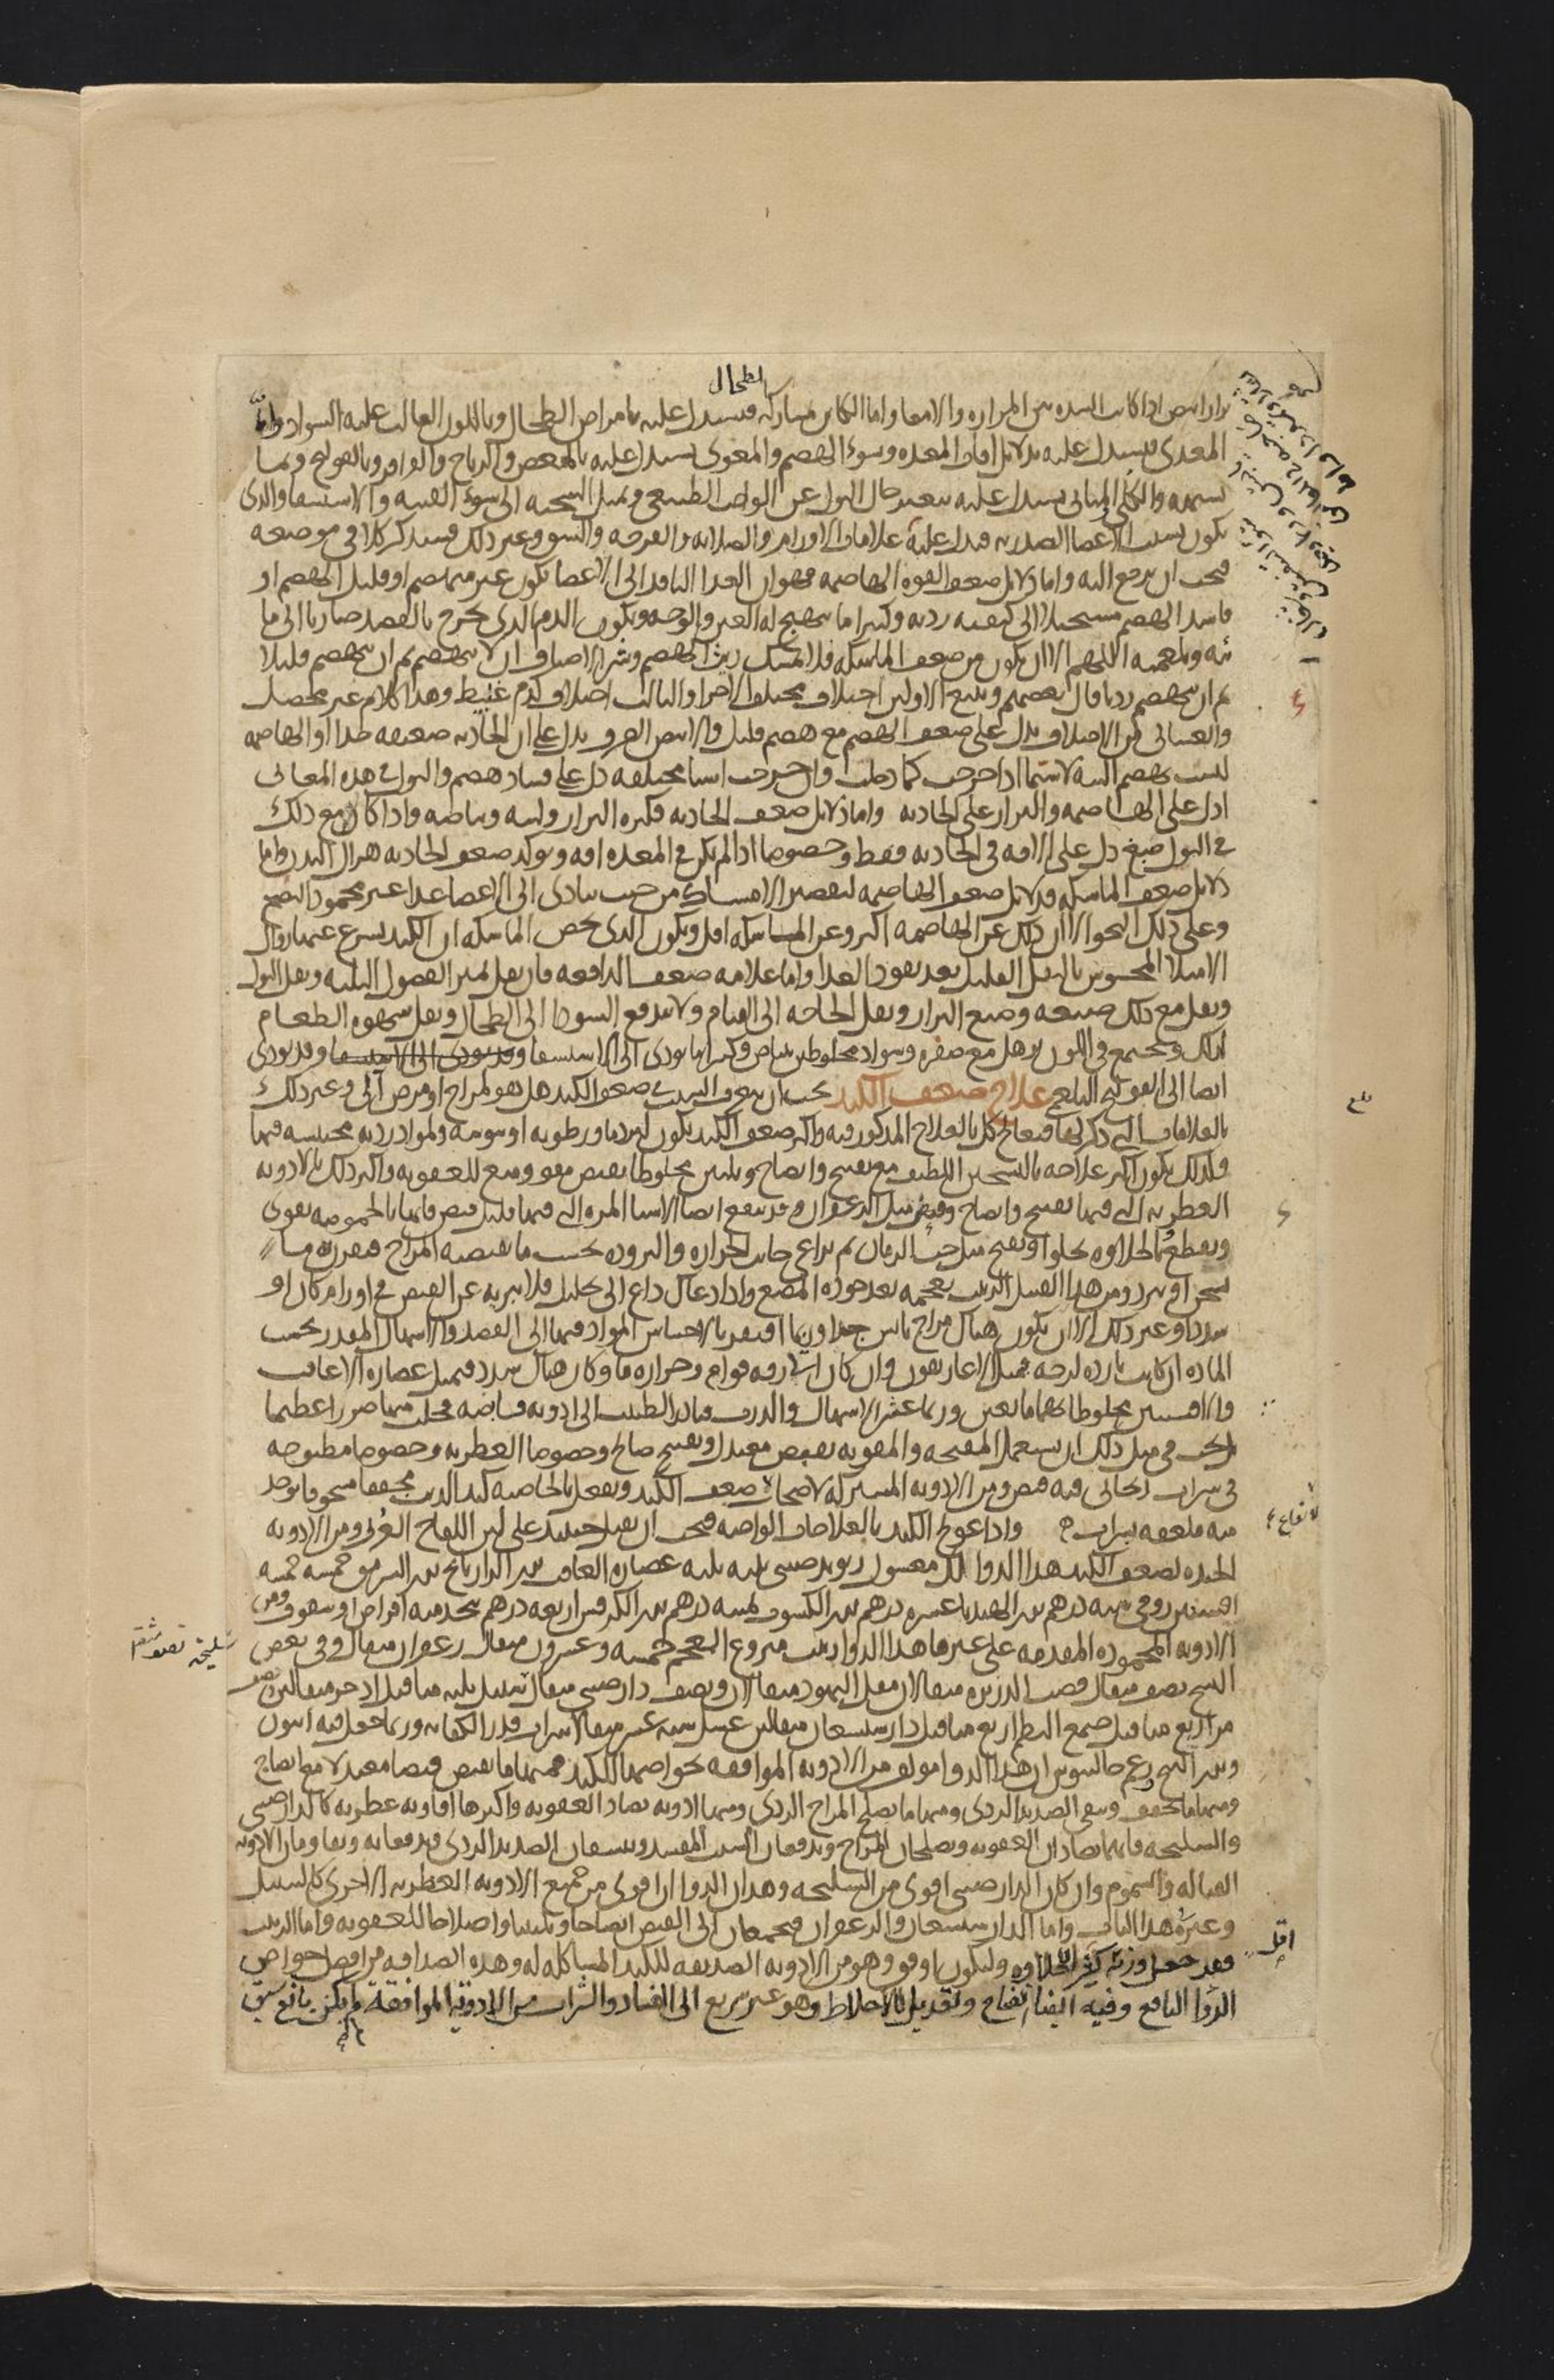 الطحال
براز ابيض اذا كانت السدة بين المرارة والامعا واما الكاين بمشاركة فيستدل عليه بامراض الطحال وباللون الغالب عليه السواد واما
المعدي فيستدل عليه بدلايل افات المعدة وسوء الهضم والمعوي يستدل عليه بالمغص والرياح والقراقر وبالقولنج وبما
يشبهه والكلي المثاني يستدل عليه بتغير حال البول عن الواجب الطبيعي وبميل السحنة الى سوء القنية والاستسقا والذي
يكون بسبب الاعضا الصدرية فيدل عليه علامات الاورام والصلابة والقرحة والشق وغير ذلك فسنذكر كلا في موضعه
فيجب ان يرجع اليه واما دلايل ضعف القوة الهاضمة فهو ان الغذا النافذ الى الاعضا يكون غير منهضم او قليل الهضم او
فاسد الهضم مستحيلا الى كيفية ردية وكثيرا ما يتهيج له العين والوجه ويكون الدم الذي يخرج بالفصد ضاربا الى ما
ئية وبلغمية اللهم الا ان يكون من ضعف الماسكة فلا تمسك ريث الهضم وشر الاصناف ان لا ينهضم ثم ان ينهضم قليلا
ثم ان ينهضم رديا قال بعضهم ويتبع الاولين اختلاف مختلف الاجزا والثالث اختلاف كدم غليظ وهذا كلام غير محصل
والغسالى من الاختلاف يدل على ضعف الهضم مع هضم قليل والابيض الصرف يدل على ان الجاذبة ضعيفة جدا او الهاضمة
ليست تهضم البتة لاسيما اذا خرجت كما دخلت وان خرجت اشيا مختلفة دل على فساد هضم والبول في هذه المعاني
ادل على الهاضمة والبراز على الجاذبة واما دلايل ضعف الجاذبة فكثرة البراز ولينه وبياضه واذا كان مع ذلك
في البول صبغ دل على الافة في الجاذبة فقط وخصوصا اذا لم يكن في المعدة افة ويوكد ضعف الجاذبة هزال البدن واما
دلايل ضعف الماسكة فدلايل ضعف الهاضمة لتقصير الامساك من حيث يتادى الى الاعضا غذا غير محمود النضج
وعلى ذلك النحو الا ان ذلك عن الهاضمة اكثر وعن الماسكة اقل ويكون الذي يخص الماسكة ان الكبد يسرع عنها زوال
الامتلا المحسوس بالثقل القليل بعد نفوذ الغذا واما علامة ضعف الدافعة فان يقل تميز الفضول الثلثة ويقل البول
ويقل مع ذلك صبغه وصبغ البراز ويقل الحاجة الى القيام ولا يندفع السودا الى الطحال ويقل شهوة الطعام
لذلك ويجتمع في اللون ترهل مع صفرة وسواد مخلوطين ببياض وكثيرا ما يودى الى الاستسقا وقد يودى الى الاستسقا وقد يودى
ايضا الى القولنج البلغمي علاج ضعف الكبد يجب ان يتعرف السبب في ضعف الكبد هل هو لمزاج او مرض آلي وغير ذلك
بالعلامات التي ذكرناها فيعالج كل بالعلاج المذكور فيه واكثر ضعف الكبد يكون لبرد ما ورطوبة او يبوسة ولمواد ردية محتبسة فيها
فلذلك يكون اكثر علاجه بالتسخين اللطيف مع تفتيح وانضاج وتليين مخلوطا بقبض مقو ومنع للعفونة واكثر ذلك بالادوية
العطرية التي فيها تفتيح وانضاج وقبض مثل الزعفران وقد ينفع ايضا الاشيا المزة التي فيها قليل قبض فانها بالحموضة تقوى
وتقطع وبالحلاوة تجلوا وتفتح مثل حب الرمان ثم يراعى جانب الحرارة والبرودة بحسب ما يقتضيه المزاج فيقرن به ما
يسخن او يبرد ومن هذا القبيل الزبيب بعجمه بعد جودة المضغ واذا دعاك داع الى تحليل فلا تبريه عن القبض في اورام كان او
سدد او غير ذلك الا ان يكون هناك مزاج يابس جدا وربما افتقرنا لاحتباس المواد فيها الى الفصد والاسهال المقدر بحسب
المادة ان كانت باردة لزجة فمثل الاغاريقون وان كان الى رقة قوام وحرارة ما وكان هناك سدد فبمثل عصارة الغافت
والافسنتين مخلوطا بهما ما يعين وربما غش الاسهال والدرب فبادر الطبيب الى ادوية قابضة فجلب منها ضررا عظيما
بل يجب في مثل ذلك ان يستعمل المفتحة والمقوية بقبض معتدل وتفتيح صالح وخصوصا العطرية وخصوصا مطبوخة
في شراب ريحاني فيه قبض ومن الادوية المشتركة لاصحاب ضعف الكبد ويفعل بالخاصية كبد الذيب مجففا مسحوقا يوخذ
منه ملعقة بشراب واذا عولج الكبد بالعلاجات الواجبة فيجب ان يقبل حينئذ على لبن اللقاح العربي ومن الادوية
الجيدة لضعف الكبد هذا الدوا لك مغسول ريوند صيني ثلثة ثلثة عصارة الغافت بزر الرازيانج بزر السرمق خمسة خمسة
افسنتين رومي ستة درهم بزر الهندبا عشرة درهم بزر الكشوث ثمنية درهم بزر الكرفس اربعة درهم يتخذ منه اقراص او سفوف ومن
الادوية المحمودة المقدمة على غيرها هذا الدوا زبيب منزوع العجم خمسة وعشرون مثقال زعفران مثقال وفي بعض
النسخ نصف مثقال قصب الذريرة مثقالان مقل اليهود مثقالان ونصف دارصيني مثقال سنبل ثلثة مثاقيل اذخر مثقالين ونصف
مر اربع مثاقيل صمغ البطم اربع مثاقيل دارشيشعان مثقالين عسل ستة عشر مثقالا شراب قدر الكفاية وربما جعل فيه افيون
وبزر البنج زعم جالينوس ان هذا الدوا مولف من الادوية الموافقة بخواصها للكبد فمنها ما يقبض قبضا معتدلا مع انضاج
ومنها ما يجفف وينقي الصديد الردي ومنها ما يصلح المزاج الردي ومنها ادوية تضاد العفونة واكثرها افاويه عطرية كالدارصيني
والسليخة فانهما يضادان العفونة ويصلحان المزاج ويدفعان السبب المفسد وينشفان الصديد الردي ويدفعانه ويقاومان الادوية
القتالة والسموم وان كان الدارصيني اقوى من السليخة وهذان الدوا ان اقوى من جميع الادوية العطرية الاخرى كالسنبل
وغيره هذا الباب واما الدارشيشعان والزعفران فيجمعان الى القبض انضاجا وتليينا واصلاحا للعفونة واما الزبيب
فقد جعل وزنه كثير الحلاوة وليكون ما وفق وهو من الادوية الصديقة للكبد المشاكلة له وهذه الصداقة من افضل خواص
الدوا النافع وفيه ايضا انضاج وتعديل للاخلاط وهو غير سريع الى الفساد والشراب من الادوية الموافقة لو لم يكن مانع سبق
بلغ
سليخة نصف مثقال
اقل